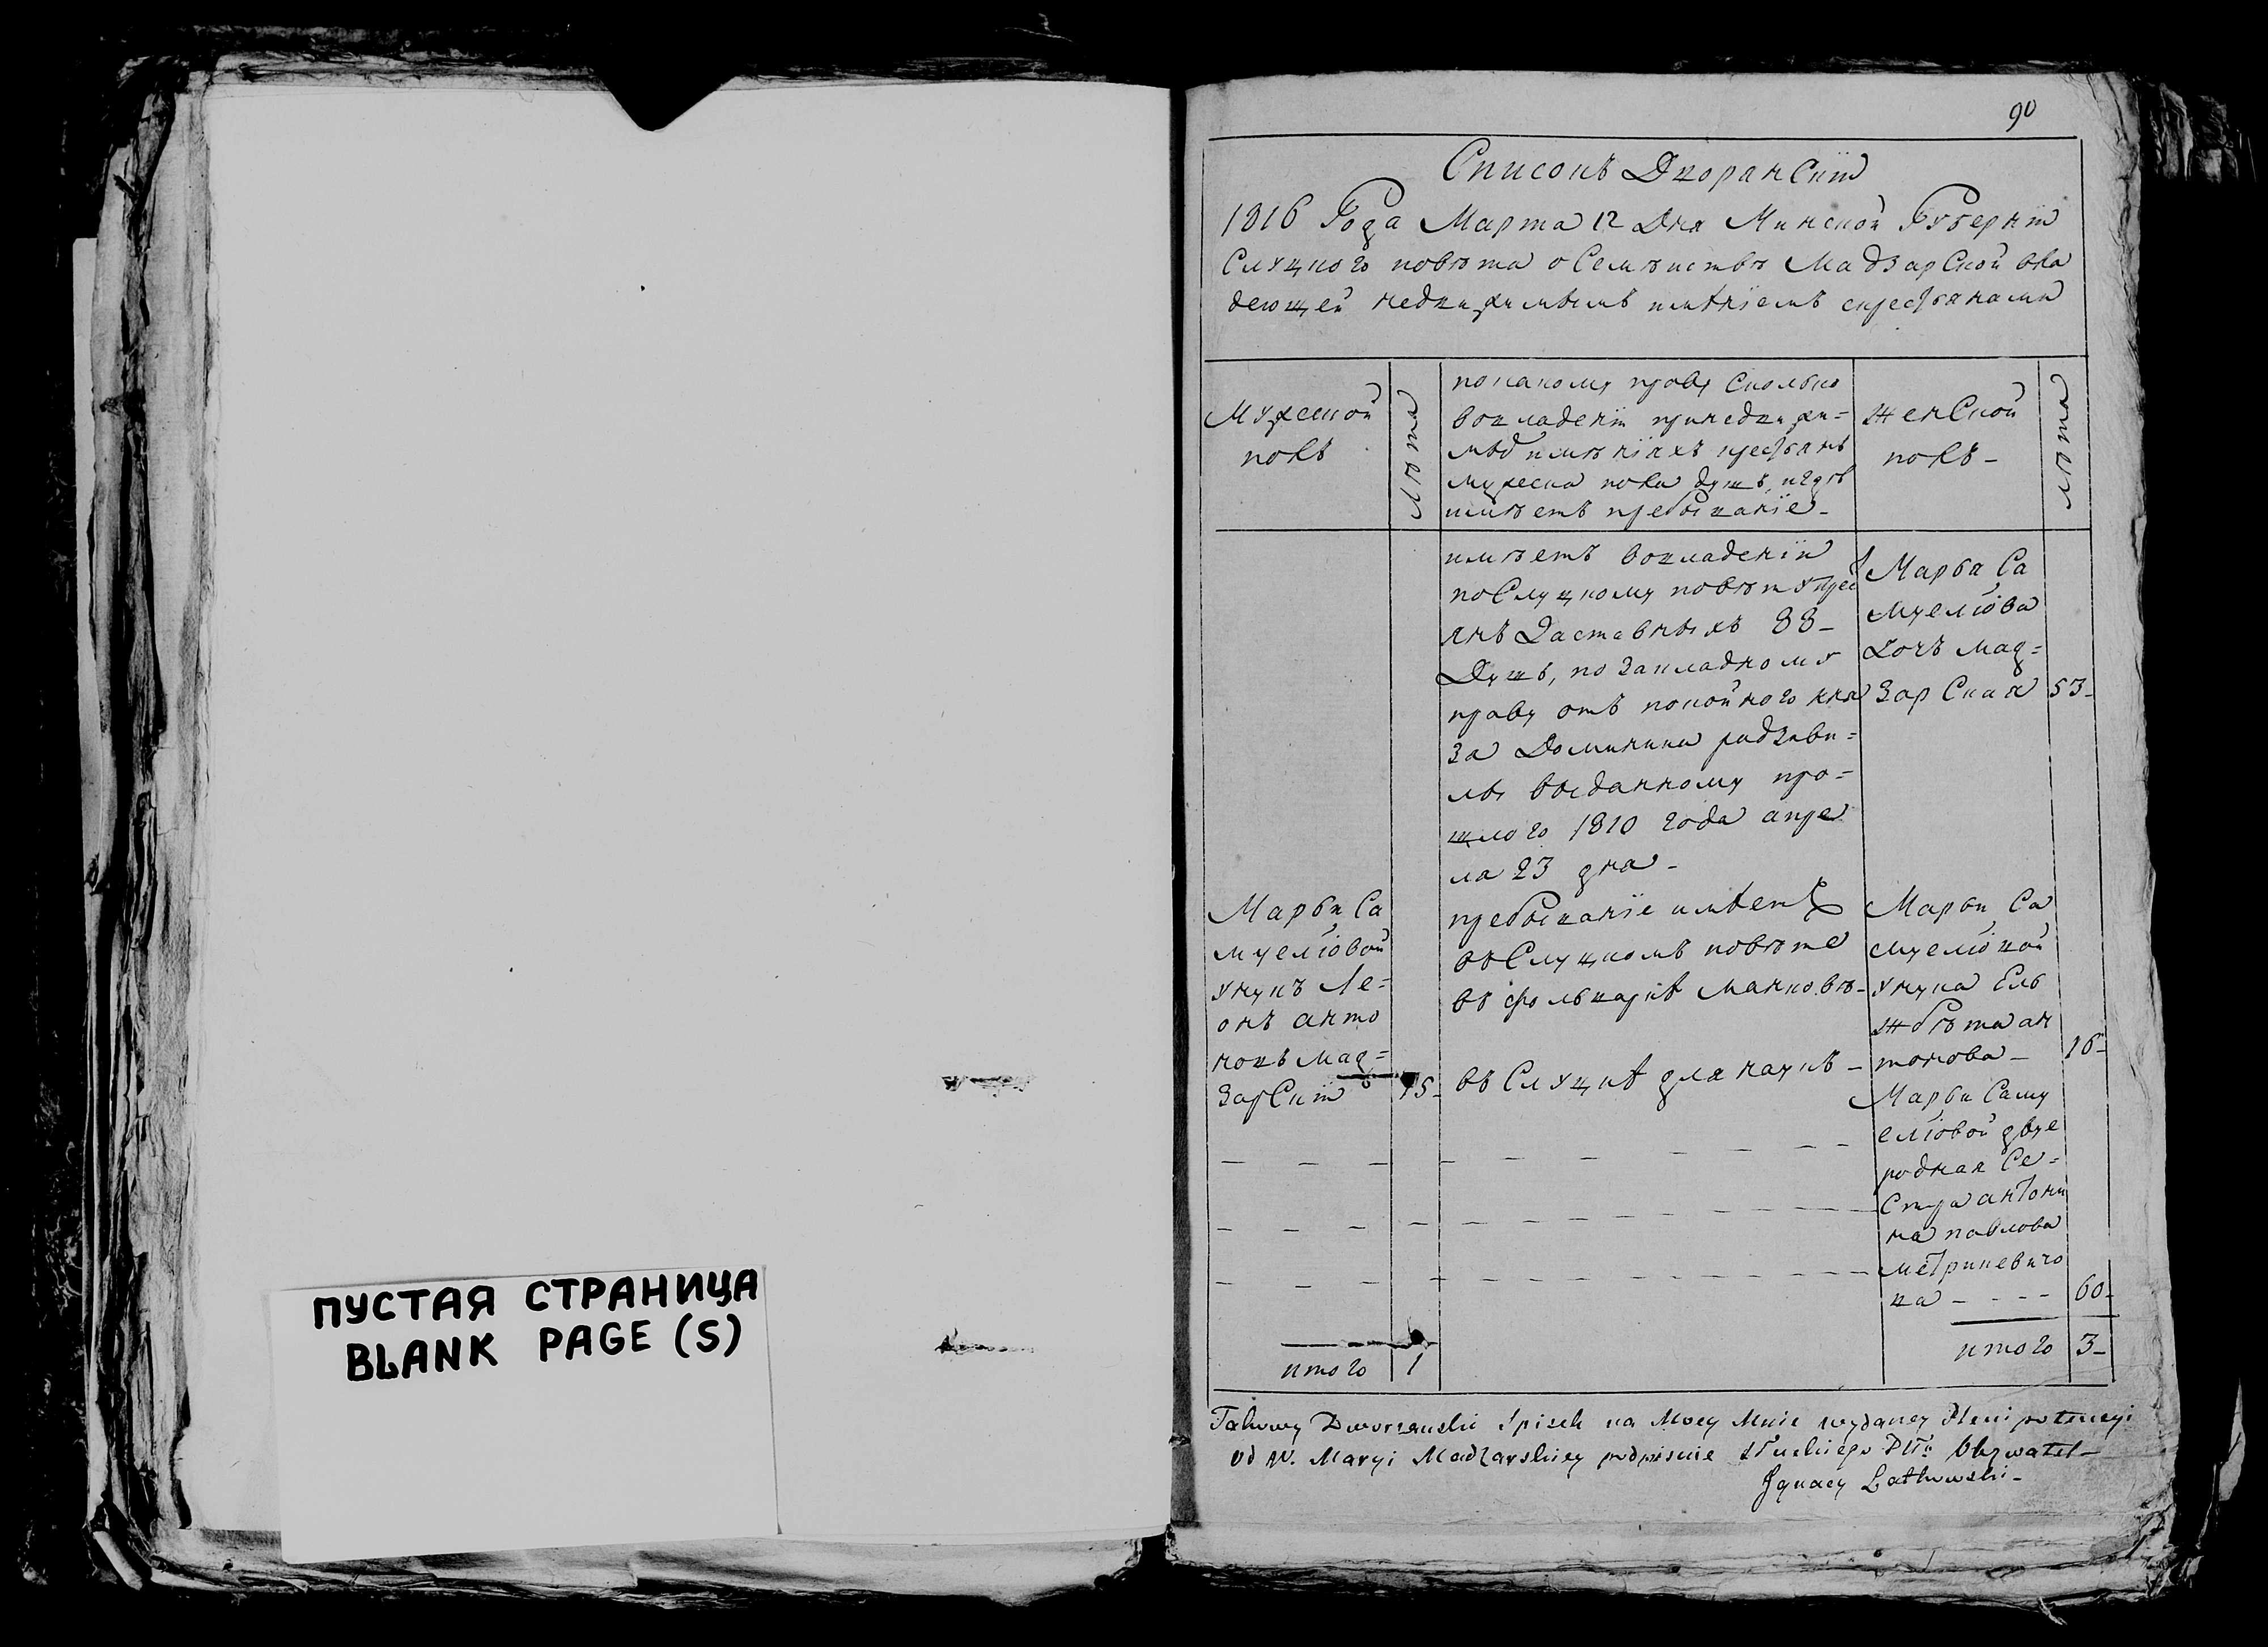 ПУСТАЯ СТРАНИЦА
BLANK PAGE (S)
90
Списокъ Дворянскїй
1816 Года Марта 12 Дня Минской Губернїи
Слуцкого повѣта о Семѣиствѣ Мадзарской вла
деющей недвижимымъ имѣнїемъ скрестьянами
Мужеской
полъ
Лѣта
покакому праву Сколько
вовладенїи принедвижи=
мыхъ имѣнїяхъ крестьянъ
мужеска пола душъ, игдѣ
имѣетъ пребыванїе -
женской
полъ -
Лѣта
имѣетъ вовладенїи
поСлуцкому повѣту крес
янъ Заставныхъ 88 -
Душъ, по закладному
праву отъ покойного кня
за Доминика радзиви=
лы выданному про=
шлого 1810 года апре
ля 23 дня -
Марья Са
муелїова
дочь мад=
зарская 53 -
Марьи Са
муелїовой
унукъ Ле=
онъ анто
новъ мад=
зарскїй 15 -
пребыванїе имѣетъ
въ Слуцкомъ повѣте
въ фольварке
въ Слуцкѣ для наукъ -
Марьи Са
муелїовой
унука Ель
жбѣта ан
тонова - 16 -
Марьи Саму
елїовой двое
родная Се=
стра антони
на павлова
ва - - - - 60 -
итого 1
итого 3 -
Takowy Dworzanski Spisek na Mocy Mnie wydaney Plenipotencyi
od W. Maryi Madzarskiey podpisuie Słuckiego Ptu Obywatel -
Ignacy